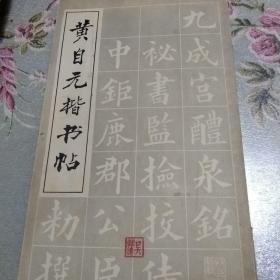 黄自元楷书帖
九成宫醴泉銘
秘書監撿挍侍
中鉅鹿郡公臣
勑撰